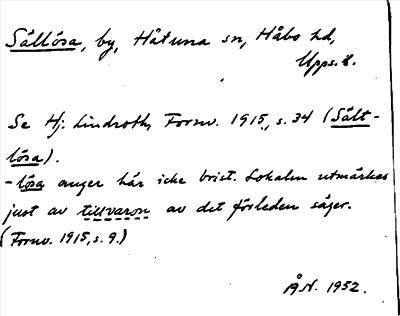 Sällösa, by, Håtuna sn, Håbo hd,
Upps. l.
Se Hj. Lindroth, Fornv. 1915, s. 34 (Sält-
lösa).
-lösa anger här icke brist. Lokalen utmärkes
just av tillvaron av det förleden säger.
(Fornv. 1915, s. 9.)
Å.N. 1952.